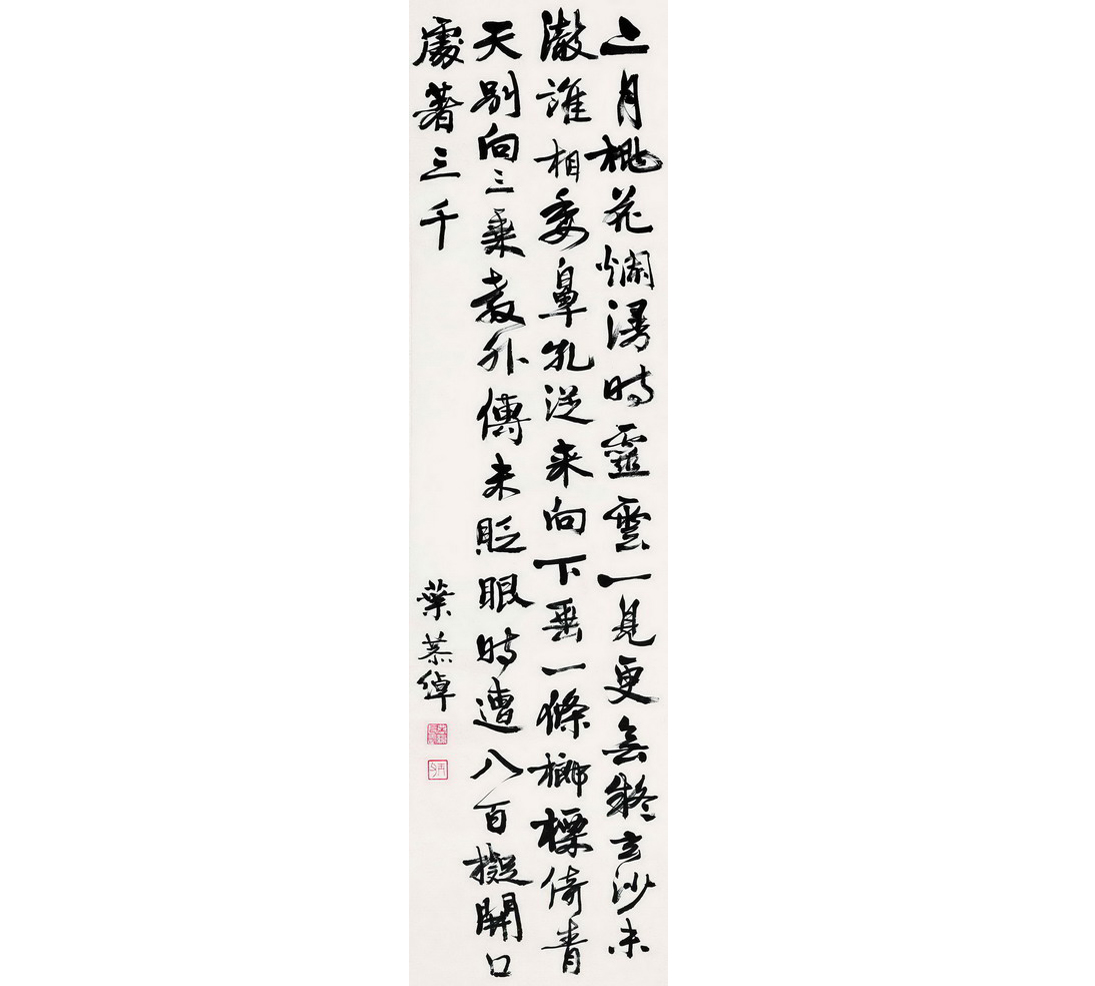 二月桃花爛漫時靈雲一見更無疑玄沙未
澈誰相委鼻孔從来向下垂一條楖倚青
天別向三乘教外傳未眨眼時遭八百擬開口
處著三千
葉恭綽